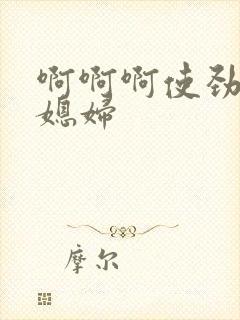 啊啊啊使劲
媳妇
摩尔